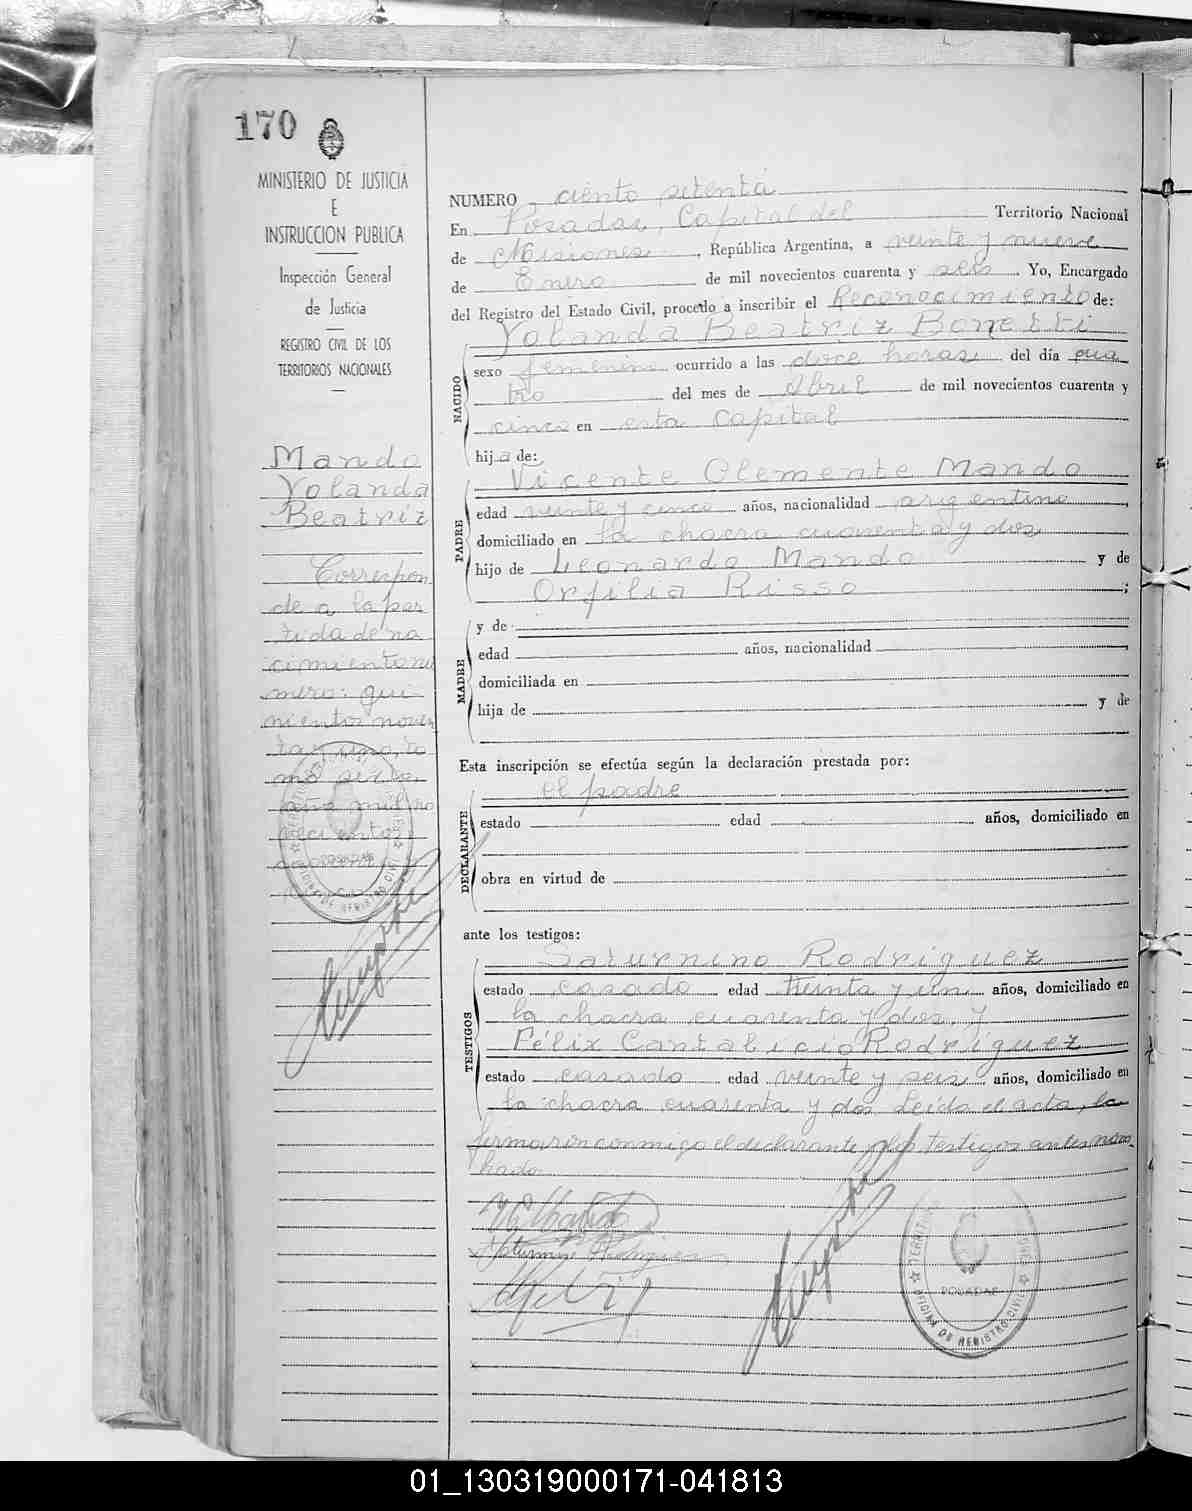 170
MINISTERIO DE JUSTICIA
E
INSTRUCCION PUBLICA
Inspección General
de Justicia
REGISTRO CIVIL DE LOS
TERRITORIOS NACIONALES
Mando
Yolanda
Beatriz
Correspon
de a la par
tida de na
cimiento nu
mero: qui
nientos noven
ta y uno, to
mo
año mil no
vecientos
NUMERO ciento setenta
En Posadas, Capital del Territorio Nacional
de Misiones, República Argentina, a veinte y nueve
de Enero de mil novecientos cuarenta y seis. Yo, Encargado
del Registro del Estado Civil, procedo a inscribir el Reconocimiento de:
NACIDO
Yolanda Beatriz Bonetti
sexo femenino ocurrido a las doce horas del día cua
tro del mes de Abril de mil novecientos cuarenta y
cinco en esta Capital
hija de:
PADRE
Vicente Clemente Mando
edad veinte y cinco años, nacionalidad argentino
domiciliado en la chacra cuarenta y dos
hijo de Leonardo Mando y de
Orfilia Risso;
MADRE
y de
edad años, nacionalidad
domiciliada en
hija de y de
Esta inscripción se efectúa según la declaración prestada por:
DECLARANTE
el padre
estado edad años, domiciliado en
obra en virtud de
ante los testigos:
TESTIGOS
Saturnino Rodriguez
estado casado edad treinta y un años, domiciliado en
la chacra cuarenta y dos, y
Félix Cantalicio Rodriguez
estado casado edad veinte y seis años, domiciliado en
la chacra cuarenta y dos. Leída el acta, la
firmaron conmigo el declarante y los testigos antes nom
brados
TERRIT
POSADAS
OFICINA DE REGISTRO CIVIL
01_130319000171-041813